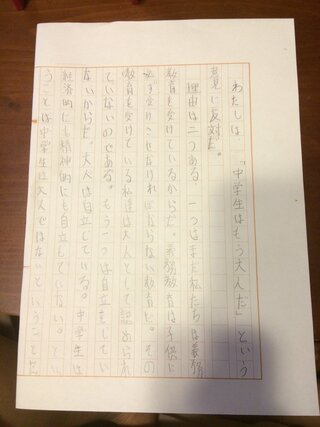 わたしは、「中学生はもう大人だ」という
意見に反対だ。
理由は二つある。一つはまだ私たちは義務
教育を受けているからだ。義務教育は子供に
必ず受けさせなければならない教育だ。その
教育を受けている私達は大人として認められ
ていないのである。もう一つは自立をしてい
ないからだ。大人は自立している。中学生は
経済的にも精神的にも自立していない。とい
うことは中学生は大人ではないということに